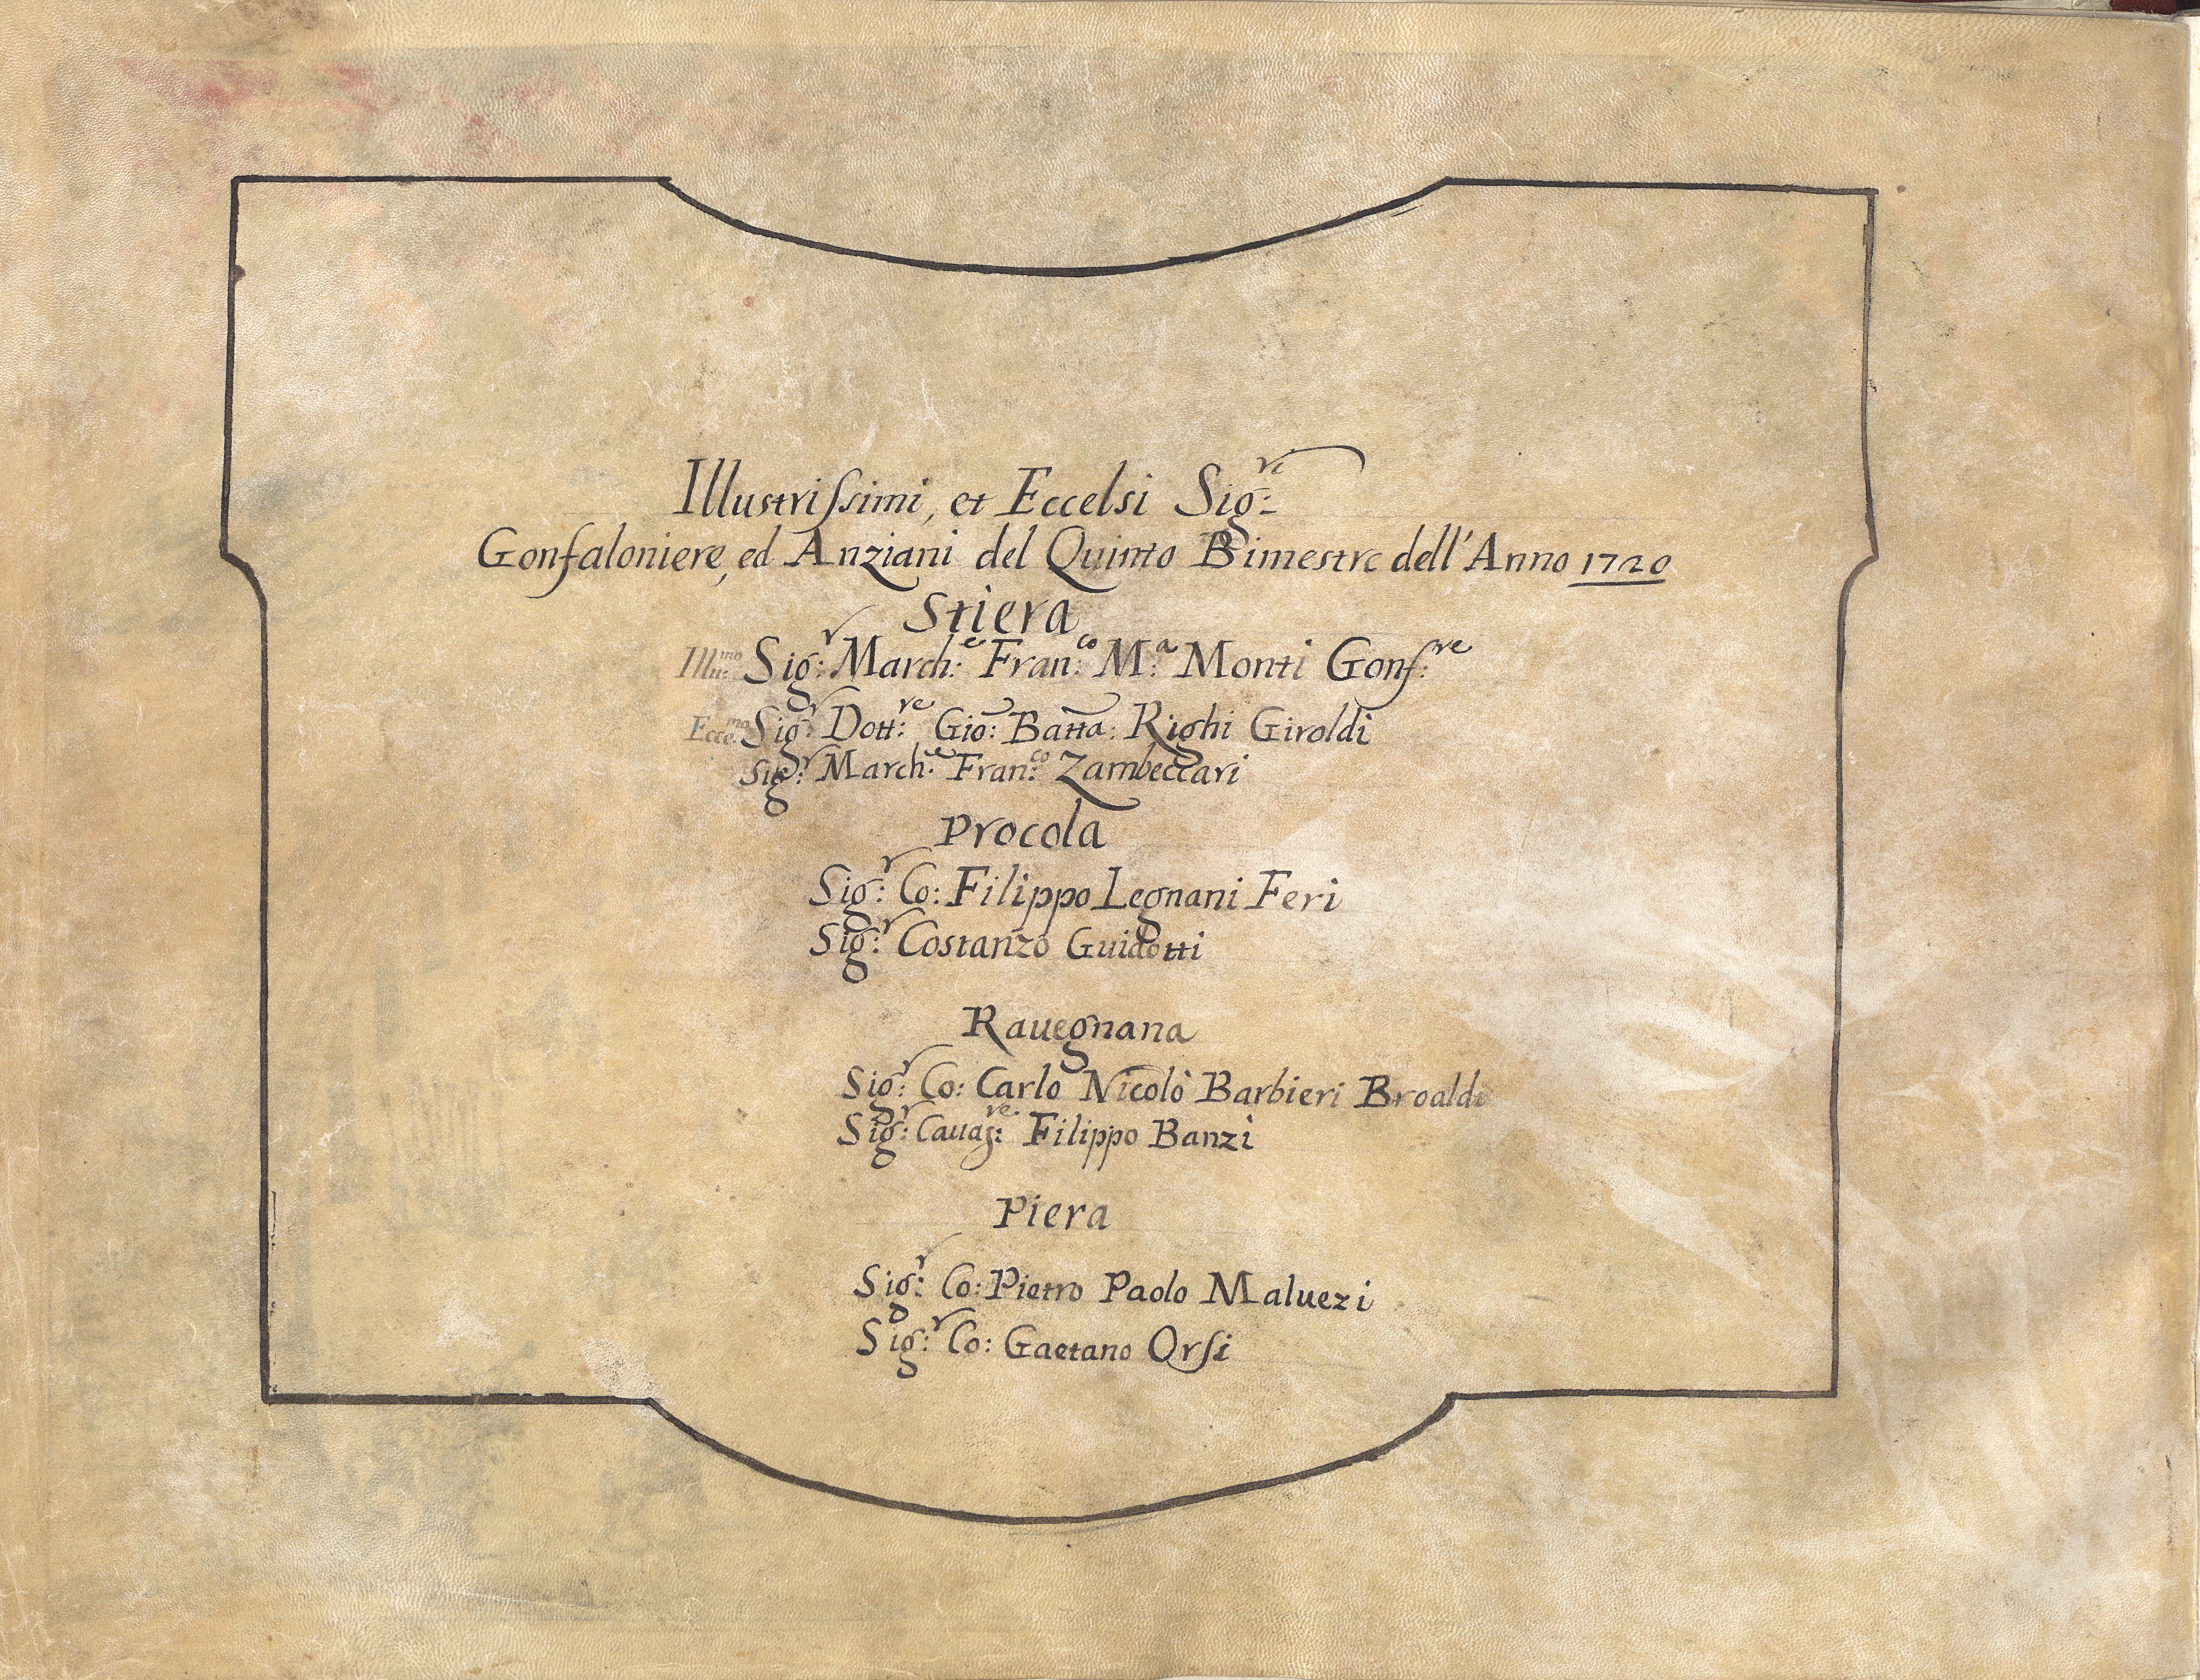 Illustriſsimi, et Eccelsi Sig:ri
Gonfaloniere, ed Anziani del Quinto Bimestre dell'Anno 1720
Stiera
Illu:mo Sig:r March:e Fran:co M:a Monti Gonf:re
Ecce:mo Sig:r Dott:re Gio: Batta: Righi Giroldi
Sig:r March:e Fran:co Zambeccari
Procola
Sig:r Co: Filippo Legnani Feri
Sig:r Costanzo Guidotti
Rauegnana
Sig:r Co: Carlo Nicolò Barbieri Broaldi
Sig:r Caua:re Filippo Banzi
Piera
Sig:r Co: Pietro Paolo Maluezi
Sig:r Co: Gaetano Orſi